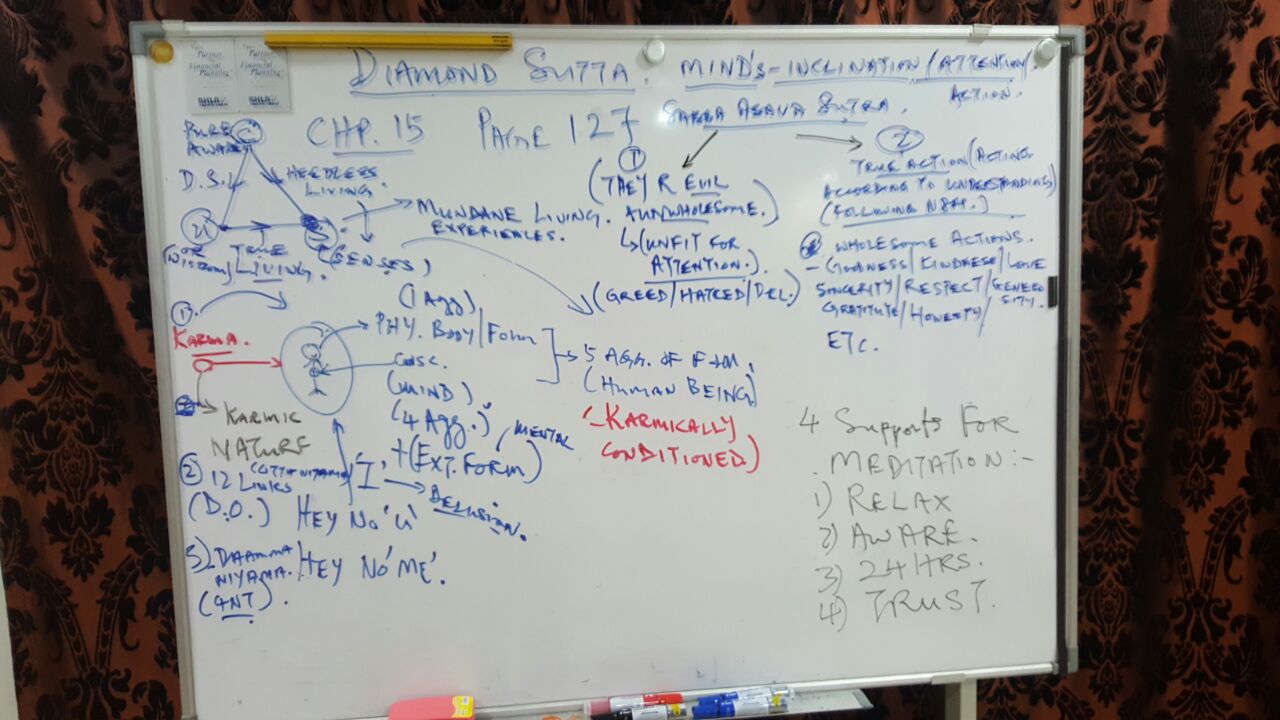 Your Partner in Financial Planning
Your Partner in Financial Planning
DIAMOND SUTTA. MIND'S-INCLINATION/ATTENTION/
ACTION.
CHP. 15 PAGE 127
SABBA ASAVA SUTRA.
PURE
AWARE
D.S.L
HEEDLESS
LIVING.
TRUE
LIVING.
(SENSES)
MUNDANE LIVING.
EXPERIENCES.
1
(THEY R EVIL
&UNWHOLESOME.)
(UNFIT FOR
ATTENTION.)
(GREED/HATRED/DEL.)
2
TRUE ACTION (ACTING
ACCORDING TO UNDERSTANDING)
(FOLLOWING N8FP.)
WHOLESOME ACTIONS.
- GOODNESS/KINDNESS/LOVE
SINCERITY/RESPECT/GENERO
SITY.
GRATITUTE/HONESTY/
ETC.
1)
KARMA.
KARMIC
NATURE
(1 Agg)
PHY. BODY/Form
CONSC.
(MIND)
(4 Agg.)
+(EXT. FORM)
(MENTAL
5 AGG. OF F+M.
(HUMAN BEING)
(KARMICALLY
CONDITIONED)
2 12 LINKS
(CITTA NIYAMA)
(D.O.)
'I'
DELUSION.
HEY NO 'U'
3) DHAMMA
NIYAMA.
(4NT).
HEY NO 'ME'.
4 Supports FOR
MEDITATION:-
1) RELAX
2) AWARE.
3) 24HRS.
4) TRUST.